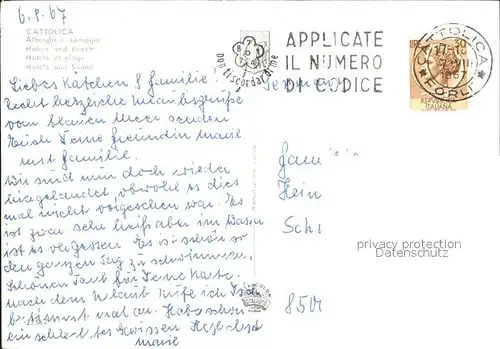 6.8.67
CATTOLICA
Alberghi e spiaggia
Hotels and beach
Hotels et plage
Hotels und Strand
Non ti scordar di me
APPLICATE
IL NUMERO
DI CODICE
CATTOLICA
17-18
1967
* FORLI *
REPUBBLICA
ITALIANA
Liebes Kätchen & Familie.
Recht herzliche Urlaubsgrüße
vom blauen Meer senden
Euch Deine Freundin
mit Familie.
Wir sind nun doch wieder
hier gelandet obwohl es dies
mal nicht vorgesehen war. Es
ist zwar sehr heiß aber im Wasser
ist es vergessen. Es ist schön so
den ganzen Tag zu schwimmen.
Schönen Dank für Deine Karte.
nach dem Urlaub rufe ich Dich
bestimmt mal an. Habe schon
ein schlechtes Gewissen
Germany
Fam
Hein
Sch
850
privacy protection
Datenschutz